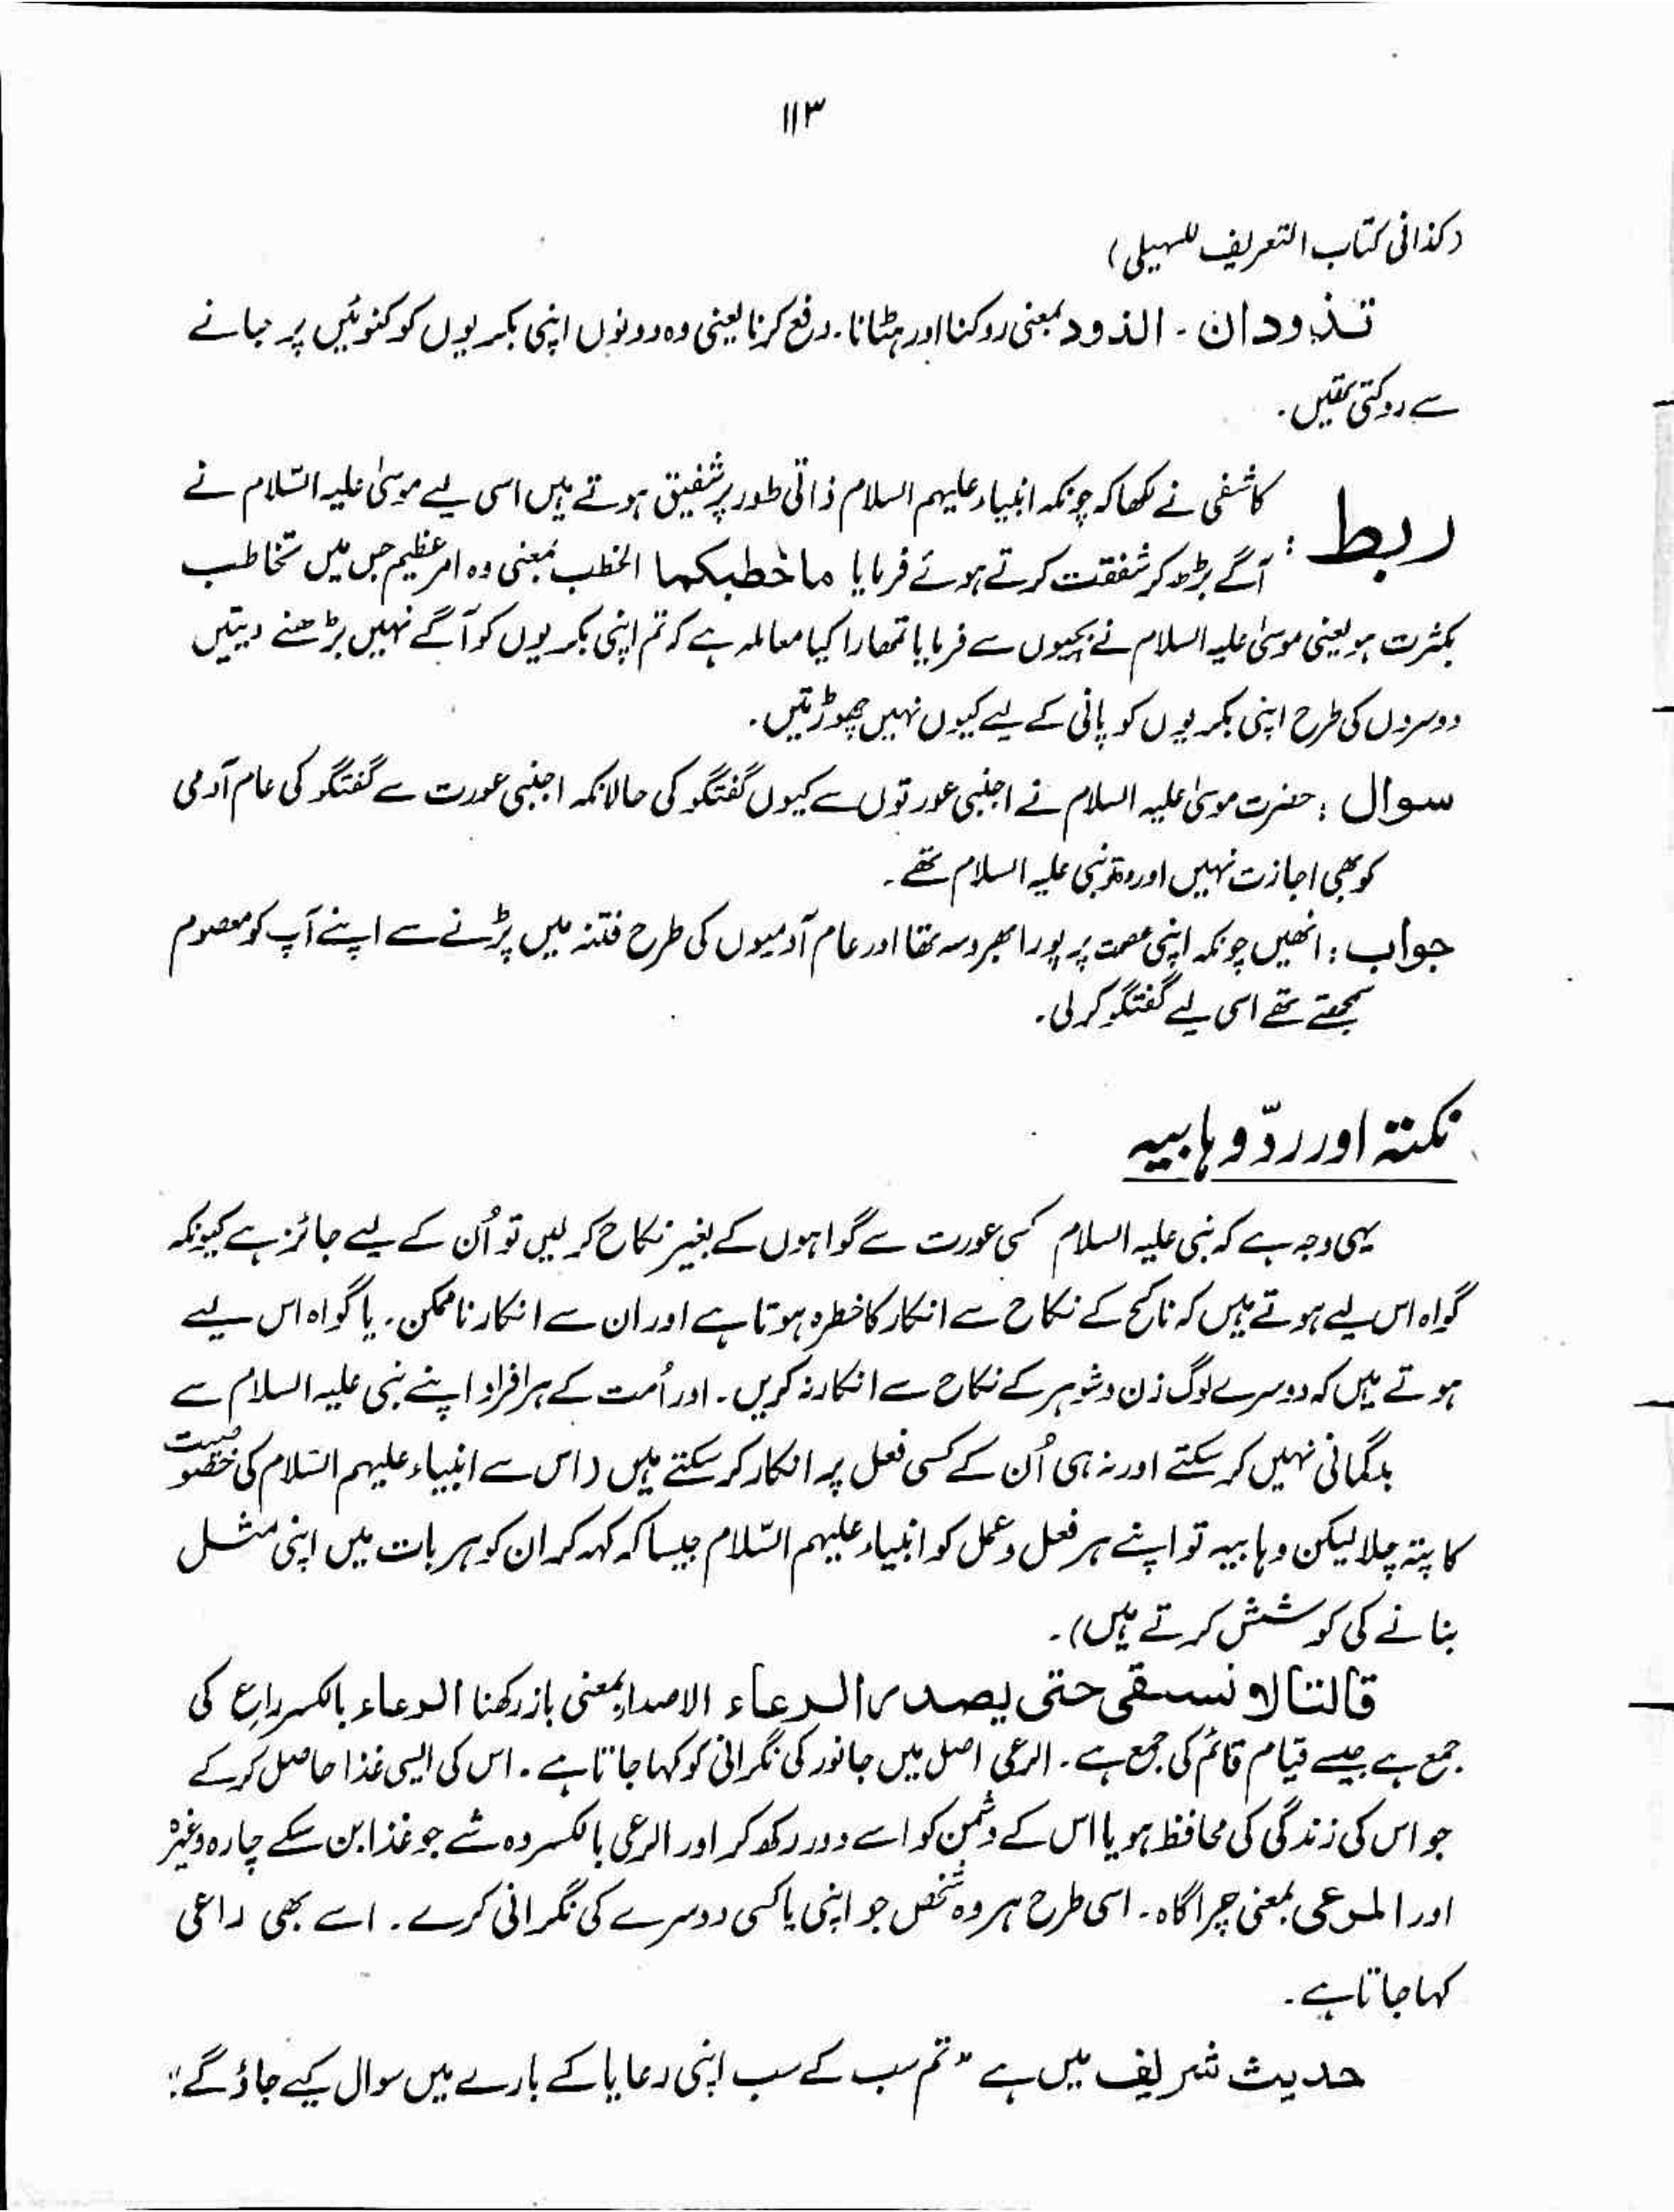 ۱۱۳
(کذافی کتاب التعریف للسہیلی)
تذودان ۔ الذود بمعنی روکنا اور ہٹانا۔ دفع کرنا یعنی وہ دونوں اپنی بکریوں کو کنوئیں پر جانے
سے روکتی تھیں۔
ربط : کاشفی نے لکھا کہ چونکہ انبیاء علیہم السلام ذاتی طور پر شفیق ہوتے ہیں اسی لیے موسیٰ علیہ السّلام نے
آگے بڑھ کر شفقت کرتے ہوئے فرمایا ما خطبکما الخطب بمعنی وہ امر عظیم جس میں تخاطب
بکثرت ہو یعنی موسیٰ علیہ السلام نے بچیوں سے فرمایا تمھارا کیا معاملہ ہے کہ تم اپنی بکریوں کو آگے نہیں بڑھنے دیتیں
دوسروں کی طرح اپنی بکریوں کو پانی کے لیے کیوں نہیں چھوڑتیں۔
سوال : حضرت موسیٰ علیہ السلام نے اجنبی عورتوں سے کیوں گفتگو کی حالانکہ اجنبی عورت سے گفتگو کی عام آدمی
کو بھی اجازت نہیں اور وہ تو نبی علیہ السلام تھے۔
جواب : انھیں چونکہ اپنی عصمت پر پورا بھروسہ تھا اور عام آدمیوں کی طرح فتنہ میں پڑنے سے اپنے آپ کو معصوم
سمجھتے تھے اسی لیے گفتگو کر لی۔
نکتہ اور ردّ وہابیہ
یہی وجہ ہے کہ نبی علیہ السلام کسی عورت سے گواہوں کے بغیر نکاح کر لیں تو اُن کے لیے جائز ہے کیونکہ
گواہ اس لیے ہوتے ہیں کہ ناکح کے نکاح سے انکار کا خطرہ ہوتا ہے اور ان سے انکار ناممکن۔ یا گواہ اس لیے
ہوتے ہیں کہ دوسرے لوگ زن و شوہر کے نکاح سے انکار نہ کریں۔ اور اُمت کے ہر افراد اپنے نبی علیہ السلام سے
بدگمانی نہیں کر سکتے اور نہ ہی اُن کے کسی فعل پر انکار کر سکتے ہیں (اس سے انبیاء علیہم السّلام کی خصوصیت
کا پتہ چلا لیکن وہابیہ تو اپنے ہر فعل و عمل کو انبیاء علیہم السّلام جیسا کہ کہہ کر ان کو ہر بات میں اپنی مثل
بنانے کی کوشش کرتے ہیں)۔
قالتا لا نسقی حتی یصدر الرعاء الاصدار بمعنی باز رکھنا الرعاء بالکسر راع کی
جمع ہے جیسے قیام قائم کی جمع ہے۔ الرعی اصل میں جانور کی نگرانی کو کہا جاتا ہے۔ اس کی ایسی غذا حاصل کر کے
جو اس کی زندگی کی محافظ ہو یا اس کے دشمن کو اسے دور رکھ کر اور الرعی بالکسر وہ شے جو غذا بن سکے چارہ وغیرہ
اور المرعی بمعنی چراگاہ۔ اسی طرح ہر وہ شخص جو اپنی یا کسی دوسرے کی نگرانی کرے۔ اسے بھی راعی
کہا جاتا ہے۔
حدیث شریف میں ہے "تم سب کے سب اپنی رعایا کے بارے میں سوال کیے جاؤ گے"